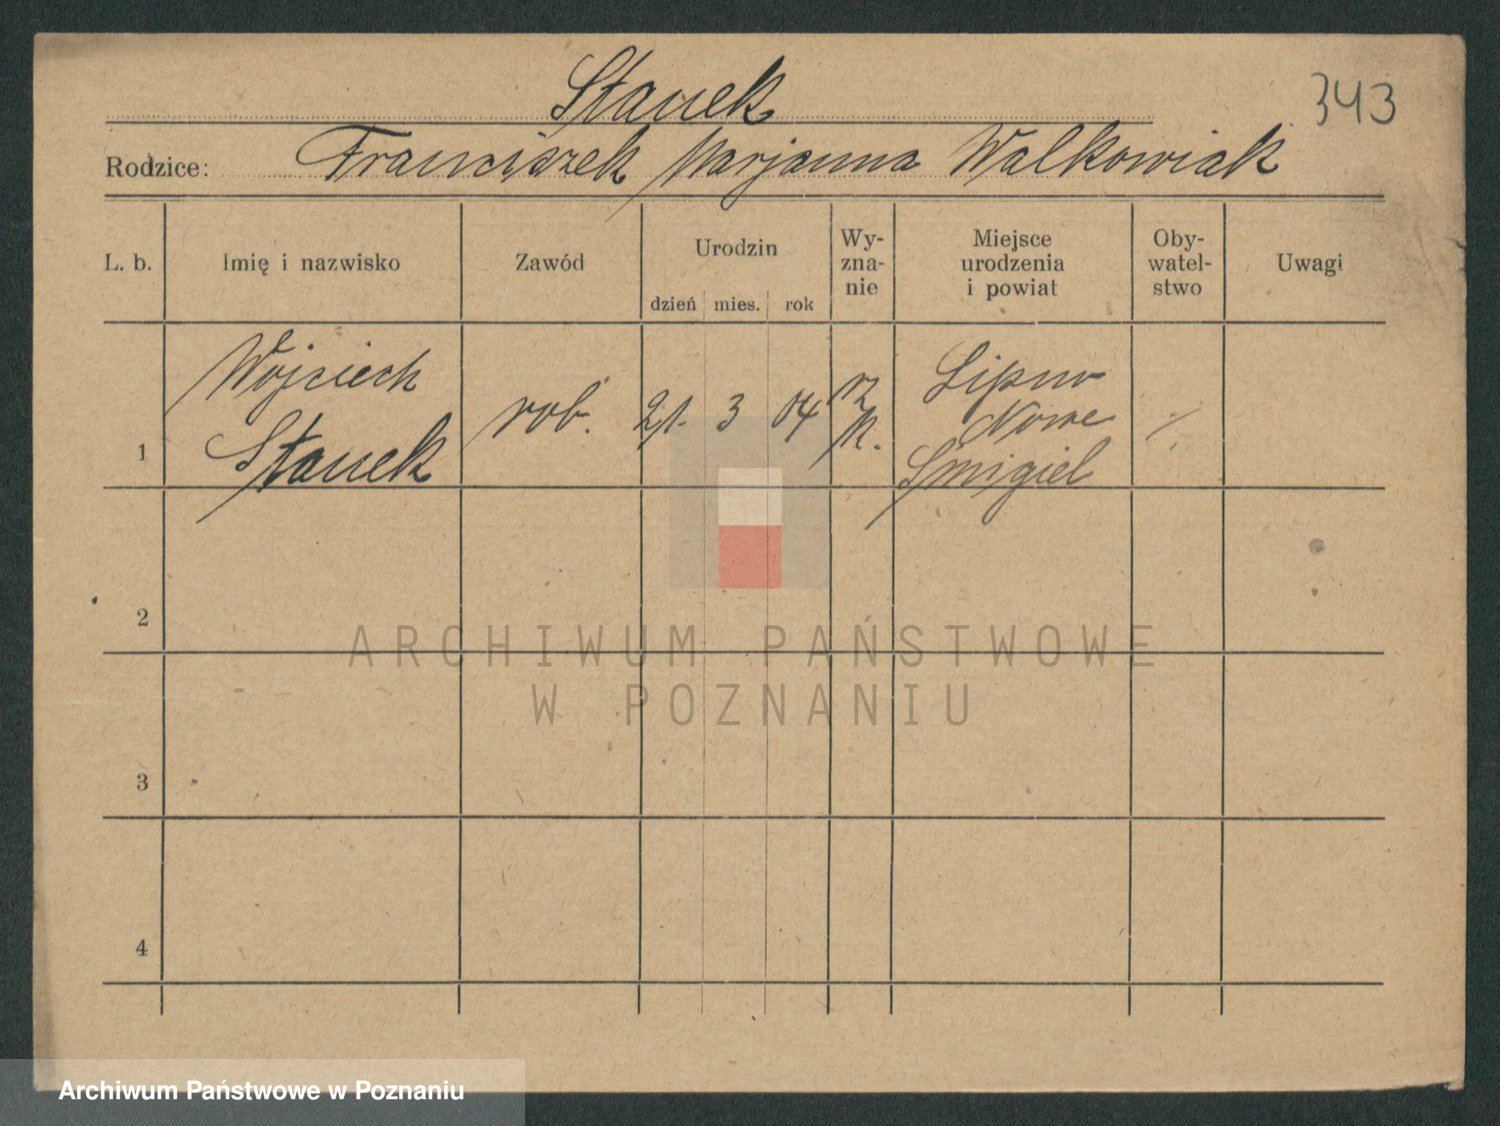 343
Stanek
Rodzice: Franciszek Marjanna Walkowiak
L. b.
Imię i nazwisko
Zawód
Urodzin
dzień mies. rok
Wy-
zna-
nie
Miejsce
urodzenia
i powiat
Oby-
watel-
stwo
Uwagi
1
Wojciech
Stanek
rob.
21. 3 04
rz
k.
Lipno
Nowe
Śmigiel
2
3
4
ARCHIWUM PAŃSTWOWE
W POZNANIU
Archiwum Państwowe w Poznaniu